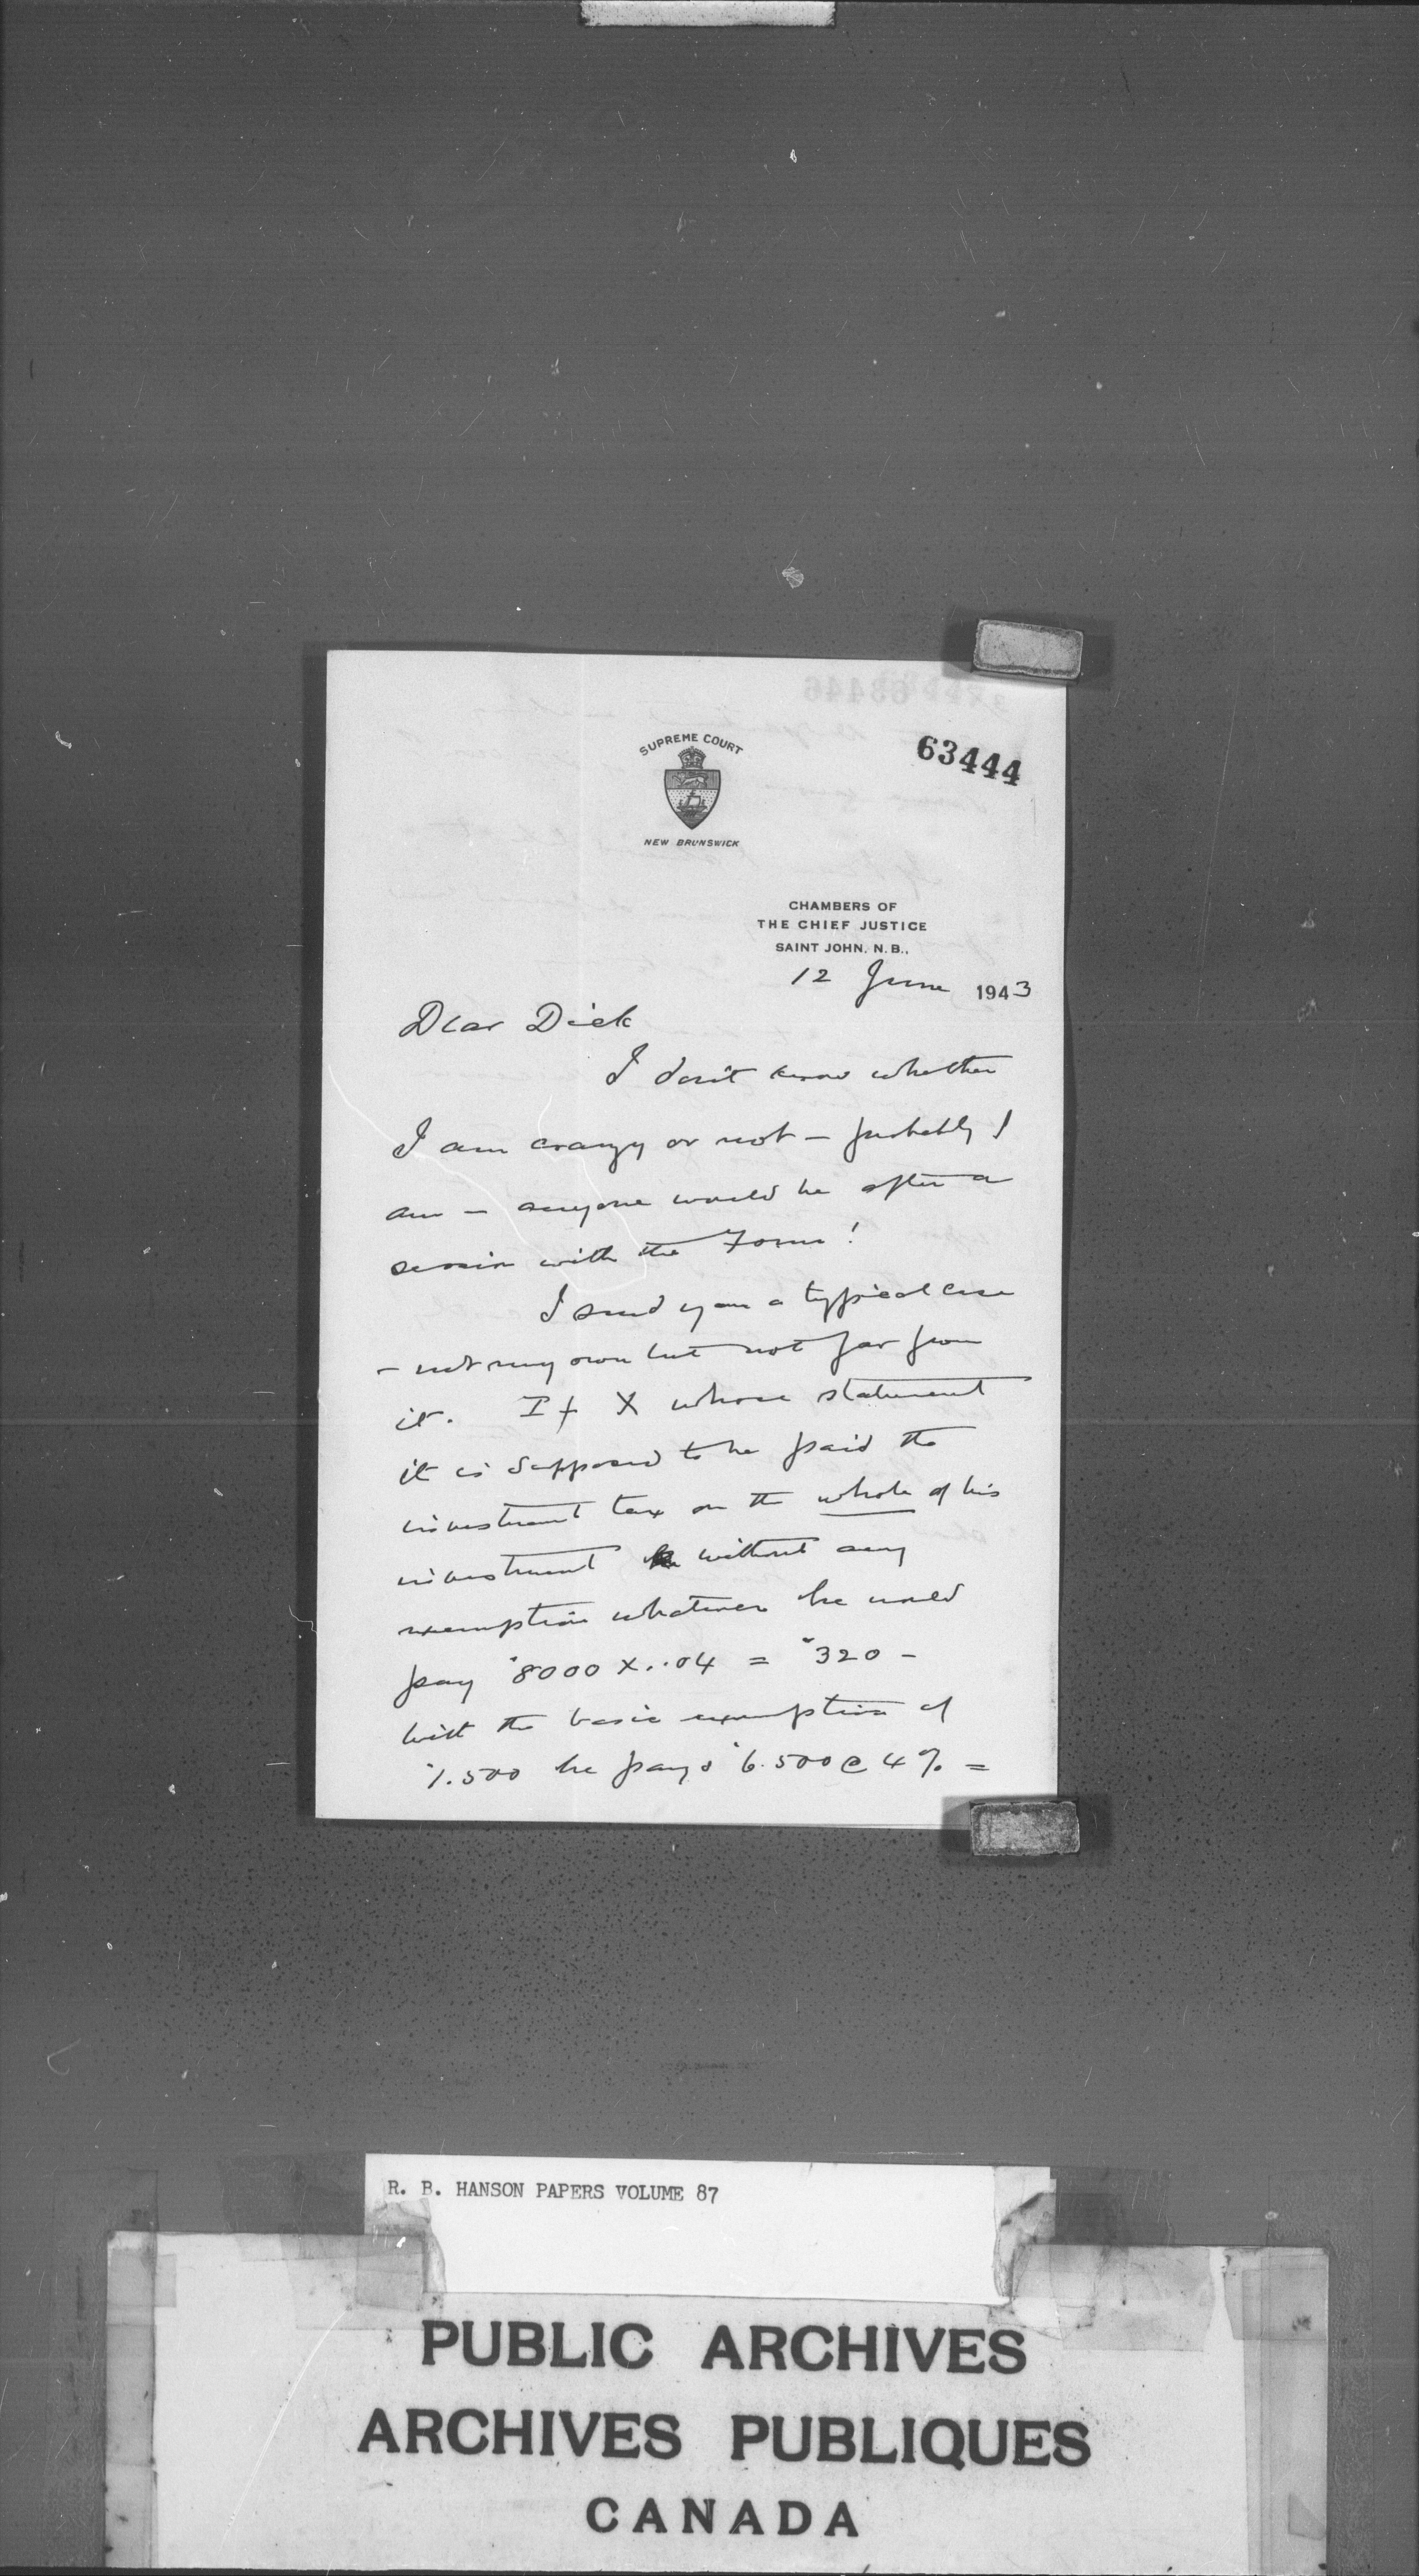 SUPREME COURT
NEW BRUNSWICK
63444
CHAMBERS OF
THE CHIEF JUSTICE
SAINT JOHN, N.B.,
12 June 1943
Dear Dick
I don't know whether
I am crazy or not — probably I
am — anyone would be after a
session with the Form!
I send you a typical case
— not my own but not far from
it. If X whose statement
it is supposed to be paid the
investment tax on the whole of his
investment without any
exemption whatever he would
pay $8000 X .04 = $320 —
With the basic exemption of
$1.500 he pays $6.500 @ 4% =
R. B. HANSON PAPERS VOLUME 87
PUBLIC ARCHIVES
ARCHIVES PUBLIQUES
CANADA